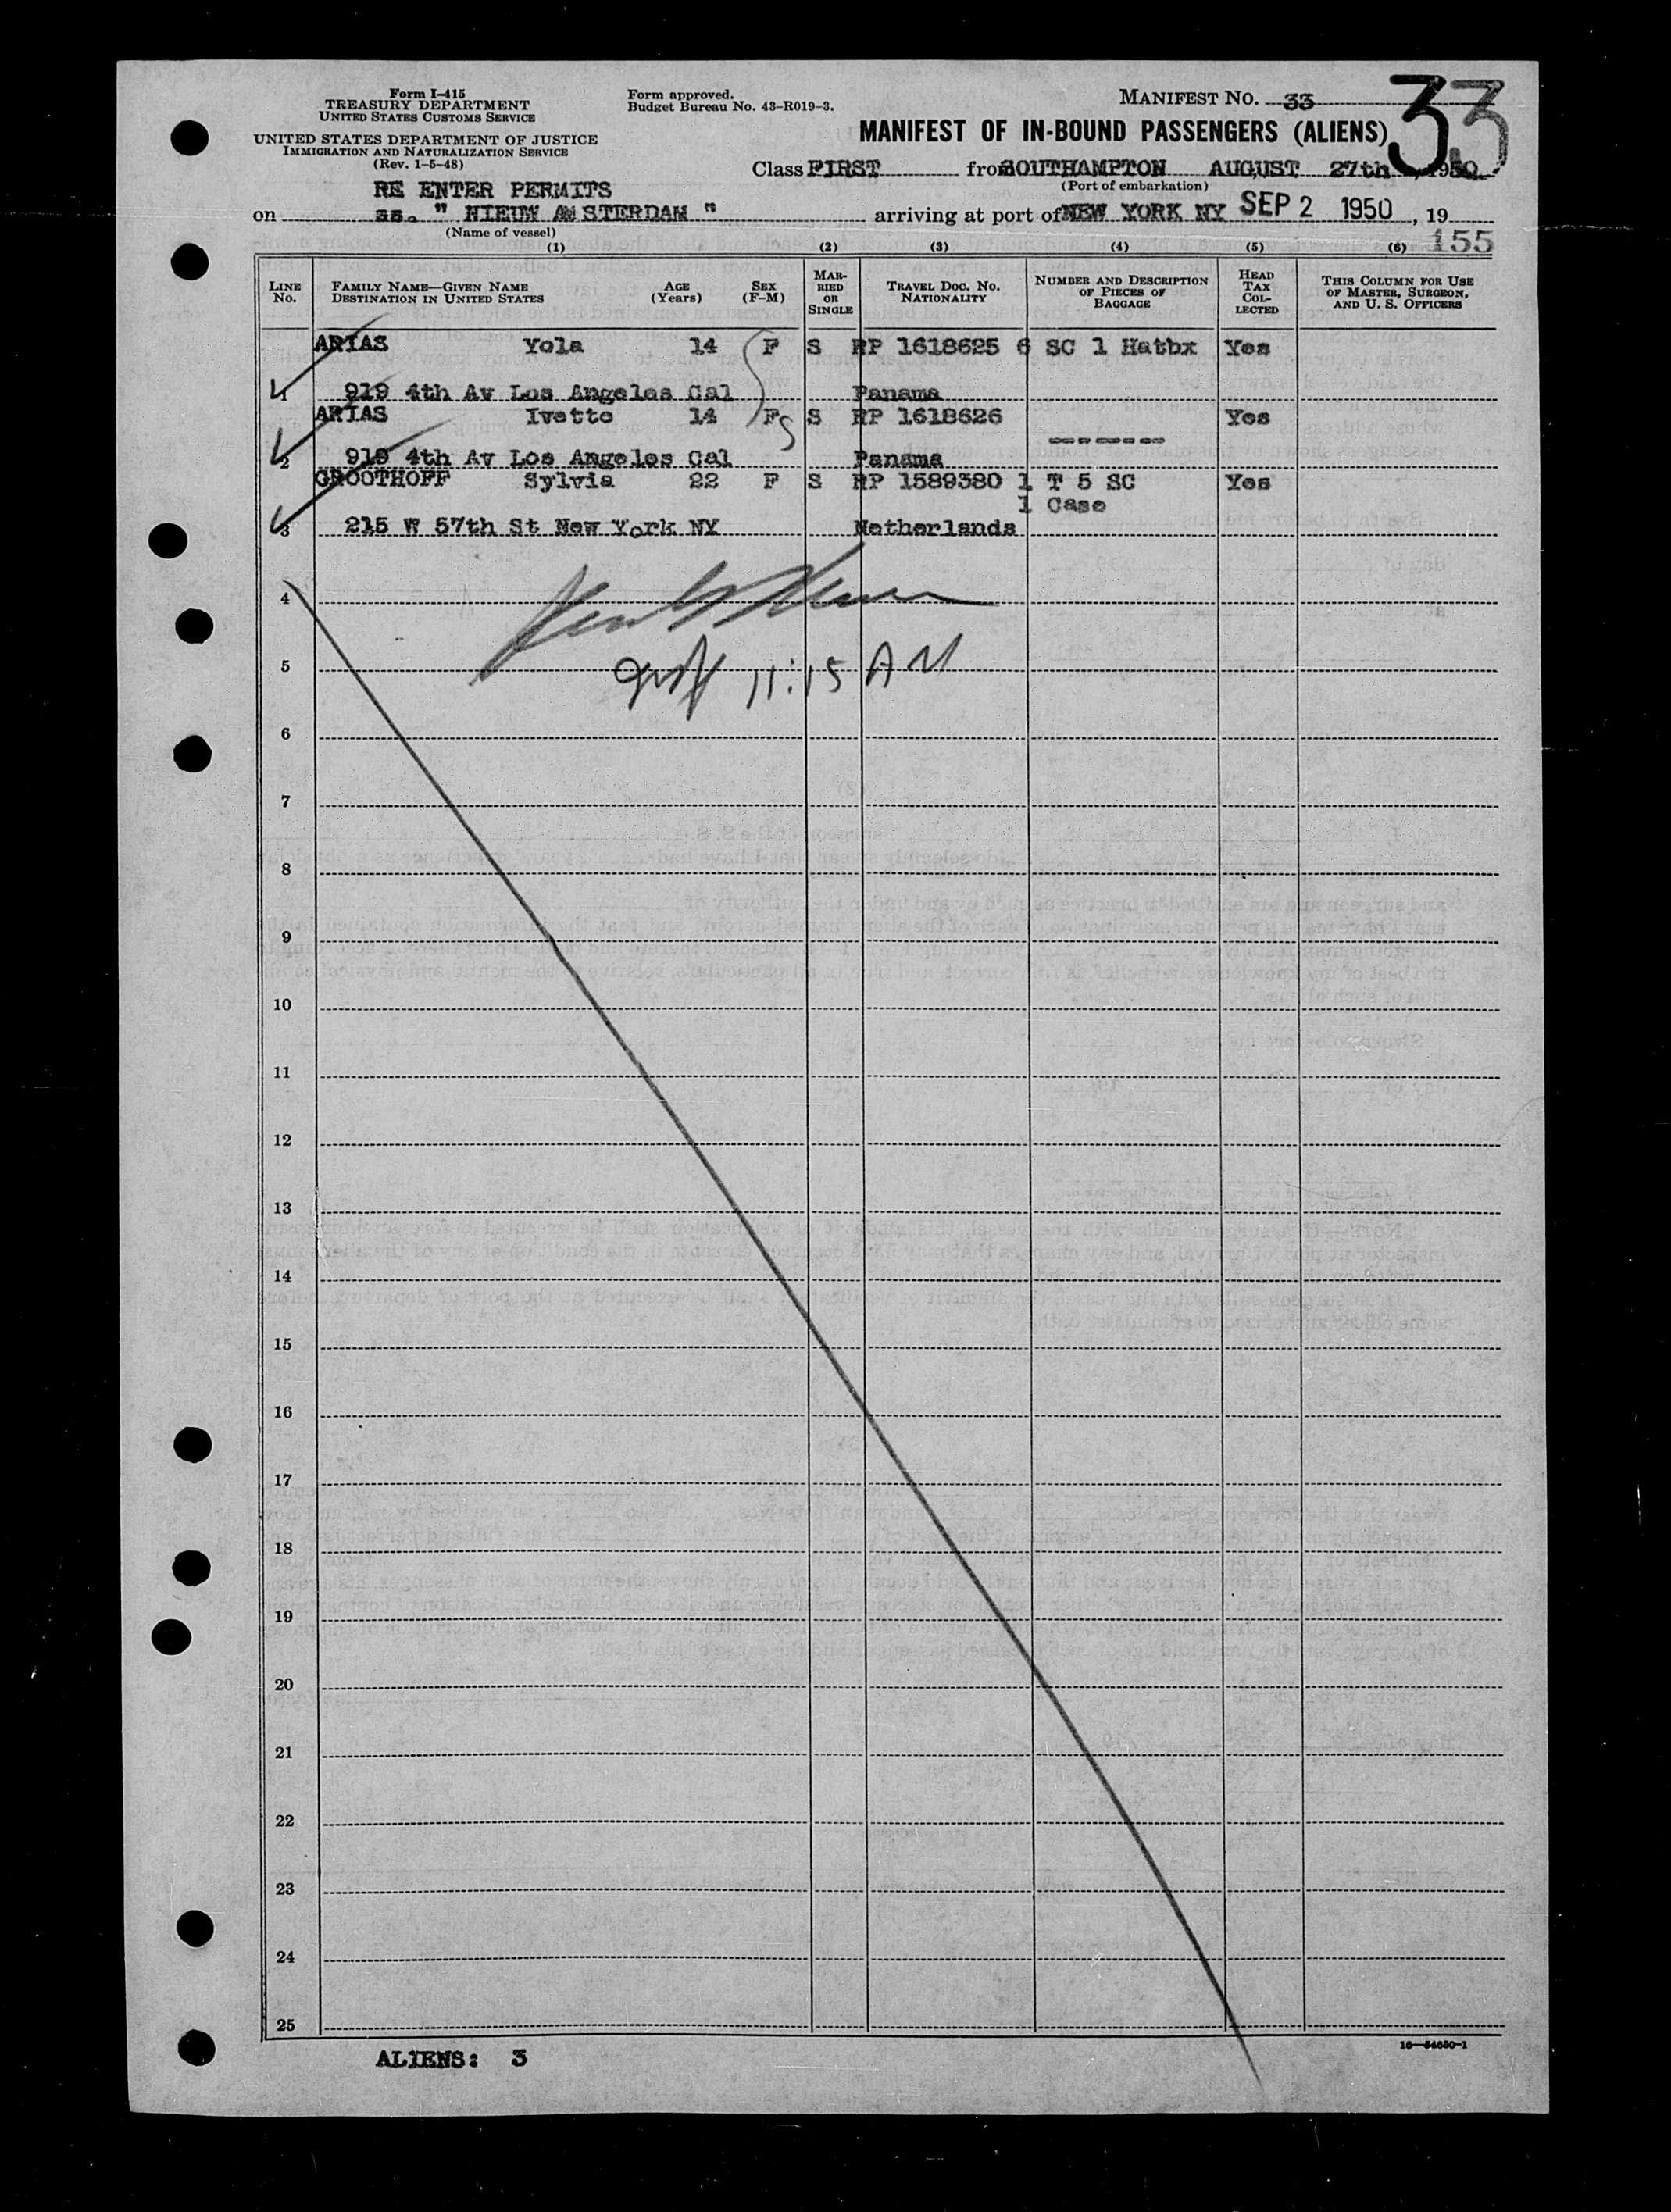 Form I-415
TREASURY DEPARTMENT
UNITED STATES CUSTOMS SERVICE
UNITED STATES DEPARTMENT OF JUSTICE
IMMIGRATION AND NATURALIZATION SERVICE
(Rev. 1-5-48)
Form approved.
Budget Bureau No. 43-R019-3.
MANIFEST NO. 33
33
MANIFEST OF IN-BOUND PASSENGERS (ALIENS)
Class FIRST from SOUTHAMPTON AUGUST 27th, 1950
(Port of embarkation)
RE ENTER PERMITS
on ss. " NIEUW AMSTERDAM " arriving at port of NEW YORK NY SEP 2 1950, 19
(Name of vessel)
155
(1) (2) (3) (4) (5) (6)
LINE No. FAMILY NAME—GIVEN NAME DESTINATION IN UNITED STATES AGE (Years) SEX (F-M) MARRIED OR SINGLE TRAVEL DOC. NO. NATIONALITY NUMBER AND DESCRIPTION OF PIECES OF BAGGAGE HEAD TAX COLLECTED THIS COLUMN FOR USE OF MASTER, SURGEON, AND U. S. OFFICERS
ARIAS Yola 14 F S RP 1618625 6 SC 1 Hatbx Yes
1 919 4th Av Los Angeles Cal Panama
ARIAS Ivette 14 F S RP 1618626 ------- Yes
2 919 4th Av Los Angeles Cal Panama
GROOTHOFF Sylvia 22 F S RP 1589380 1 T 5 SC Yes
1 Case
3 215 W 57th St New York NY Netherlands
4
5 11:15 AM
6
7
8
9
10
11
12
13
14
15
16
17
18
19
20
21
22
23
24
25
ALIENS: 3
16—54650-1